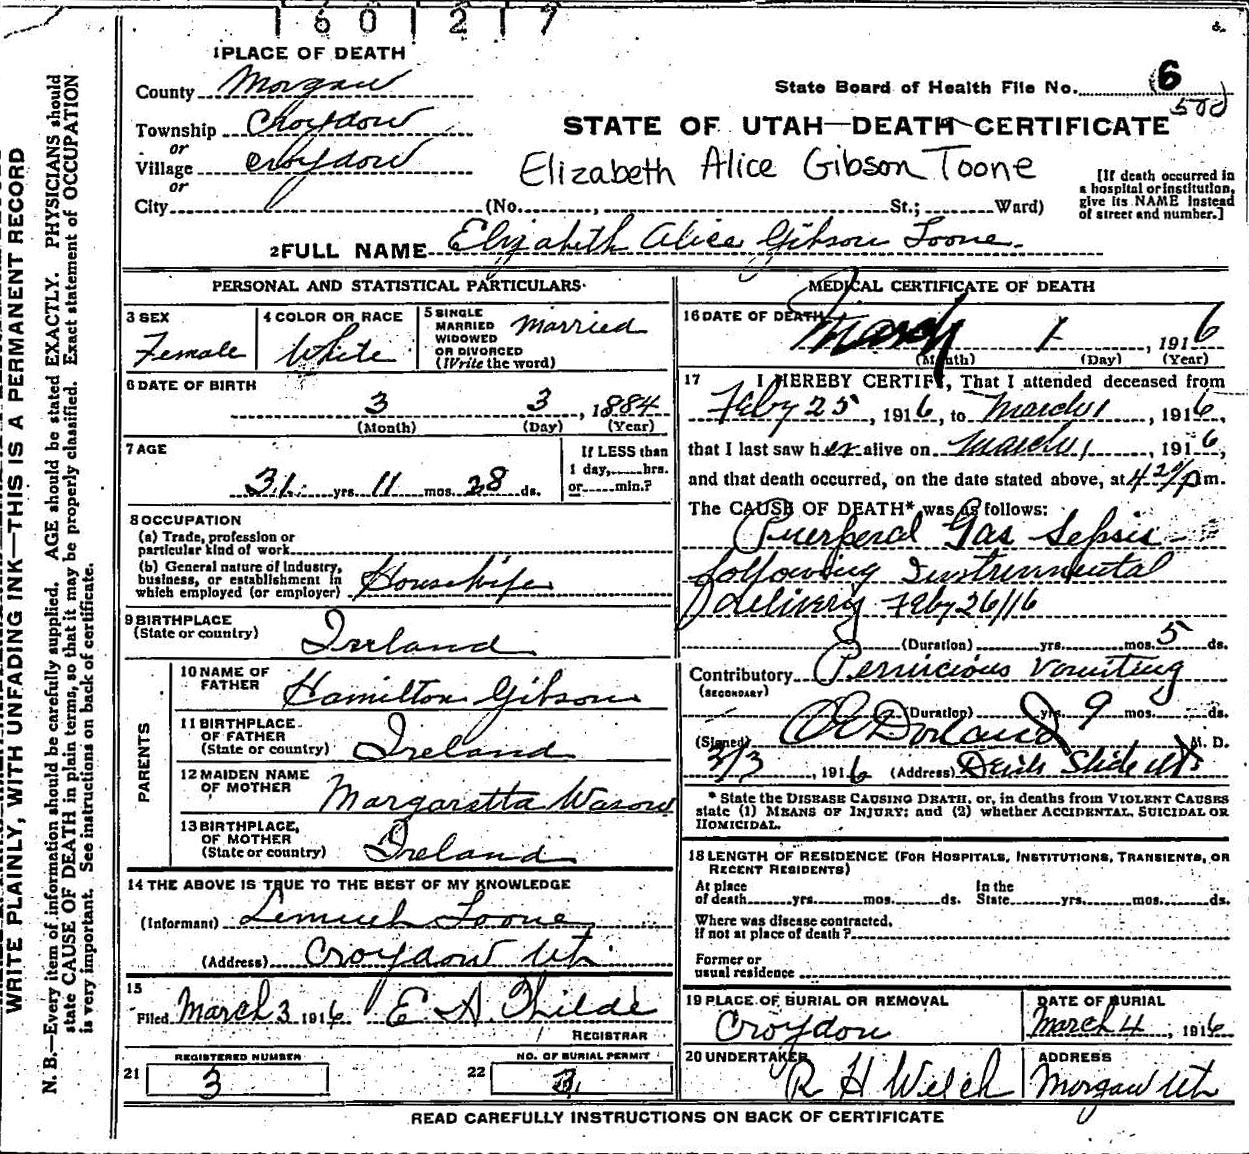 160127
1 PLACE OF DEATH
County Morgan
Township Croydon
or
Village Croydon
or
City (No. , St.; Ward)
State Board of Health File No. 6
500
STATE OF UTAH—DEATH CERTIFICATE
Elizabeth Alice Gibson Toone
[If death occurred in a hospital or institution, give its NAME instead of street and number.]
2 FULL NAME Elizabeth Alice Gibson Toone
PERSONAL AND STATISTICAL PARTICULARS
3 SEX
Female
4 COLOR OR RACE
White
5 SINGLE MARRIED WIDOWED OR DIVORCED (Write the word)
Married
6 DATE OF BIRTH
3 3, 1884
(Month) (Day) (Year)
7 AGE
31 yrs 11 mos. 28 ds.
If LESS than
1 day, hrs.
or min.?
8 OCCUPATION
(a) Trade, profession or
particular kind of work
(b) General nature of Industry,
business, or establishment in
which employed (or employer) Housewife
9 BIRTHPLACE
(State or country)
Ireland
PARENTS
10 NAME OF FATHER Hamilton Gibson
11 BIRTHPLACE OF FATHER (State or country) Ireland
12 MAIDEN NAME OF MOTHER Margaretta Wason
13 BIRTHPLACE, OF MOTHER (State or country) Ireland
14 THE ABOVE IS TRUE TO THE BEST OF MY KNOWLEDGE
(Informant) Lemuel Toone
(Address) Croydon Ut.
15
Filed March 3 1916 E. A. Thilde
REGISTRAR
REGISTERED NUMBER
21 3
NO. OF BURIAL PERMIT
22
MEDICAL CERTIFICATE OF DEATH
16 DATE OF DEATH
March 1, 1916
(Month) (Day) (Year)
17 I HEREBY CERTIFY, That I attended deceased from
Feby 25, 1916, to March 1, 1916,
that I last saw her alive on March 1, 1916,
and that death occurred, on the date stated above, at 4 20 pm.
The CAUSE OF DEATH* was as follows:
Puerperal Gas Sepsis
following Instrumental
delivery Feby 26/16
(Duration) yrs. mos. 5 ds.
Contributory Pernicious Vomiting
(SECONDARY)
(Duration) yrs. 9 mos. ds.
(Signed) Dorland M. D.
3/3, 1916 (Address) Devils Slide Ut
* State the DISEASE CAUSING DEATH, or, in deaths from VIOLENT CAUSES
state (1) MEANS OF INJURY; and (2) whether ACCIDENTAL, SUICIDAL OR
HOMICIDAL.
18 LENGTH OF RESIDENCE (FOR HOSPITALS, INSTITUTIONS, TRANSIENTS, OR
RECENT RESIDENTS)
At place
of death yrs. mos. ds.
In the
State yrs. mos. ds.
Where was disease contracted,
If not at place of death?
Former or
usual residence
19 PLACE OF BURIAL OR REMOVAL
Croydon
DATE OF BURIAL
March 4, 1916
20 UNDERTAKER
R H Welch
ADDRESS
Morgan Ut
READ CAREFULLY INSTRUCTIONS ON BACK OF CERTIFICATE
WRITE PLAINLY, WITH UNFADING INK—THIS IS A PERMANENT RECORD
N. B.—Every item of information should be carefully supplied. AGE should be stated EXACTLY. PHYSICIANS should
state CAUSE OF DEATH in plain terms, so that it may be properly classified. Exact statement of OCCUPATION
is very important. See instructions on back of certificate.